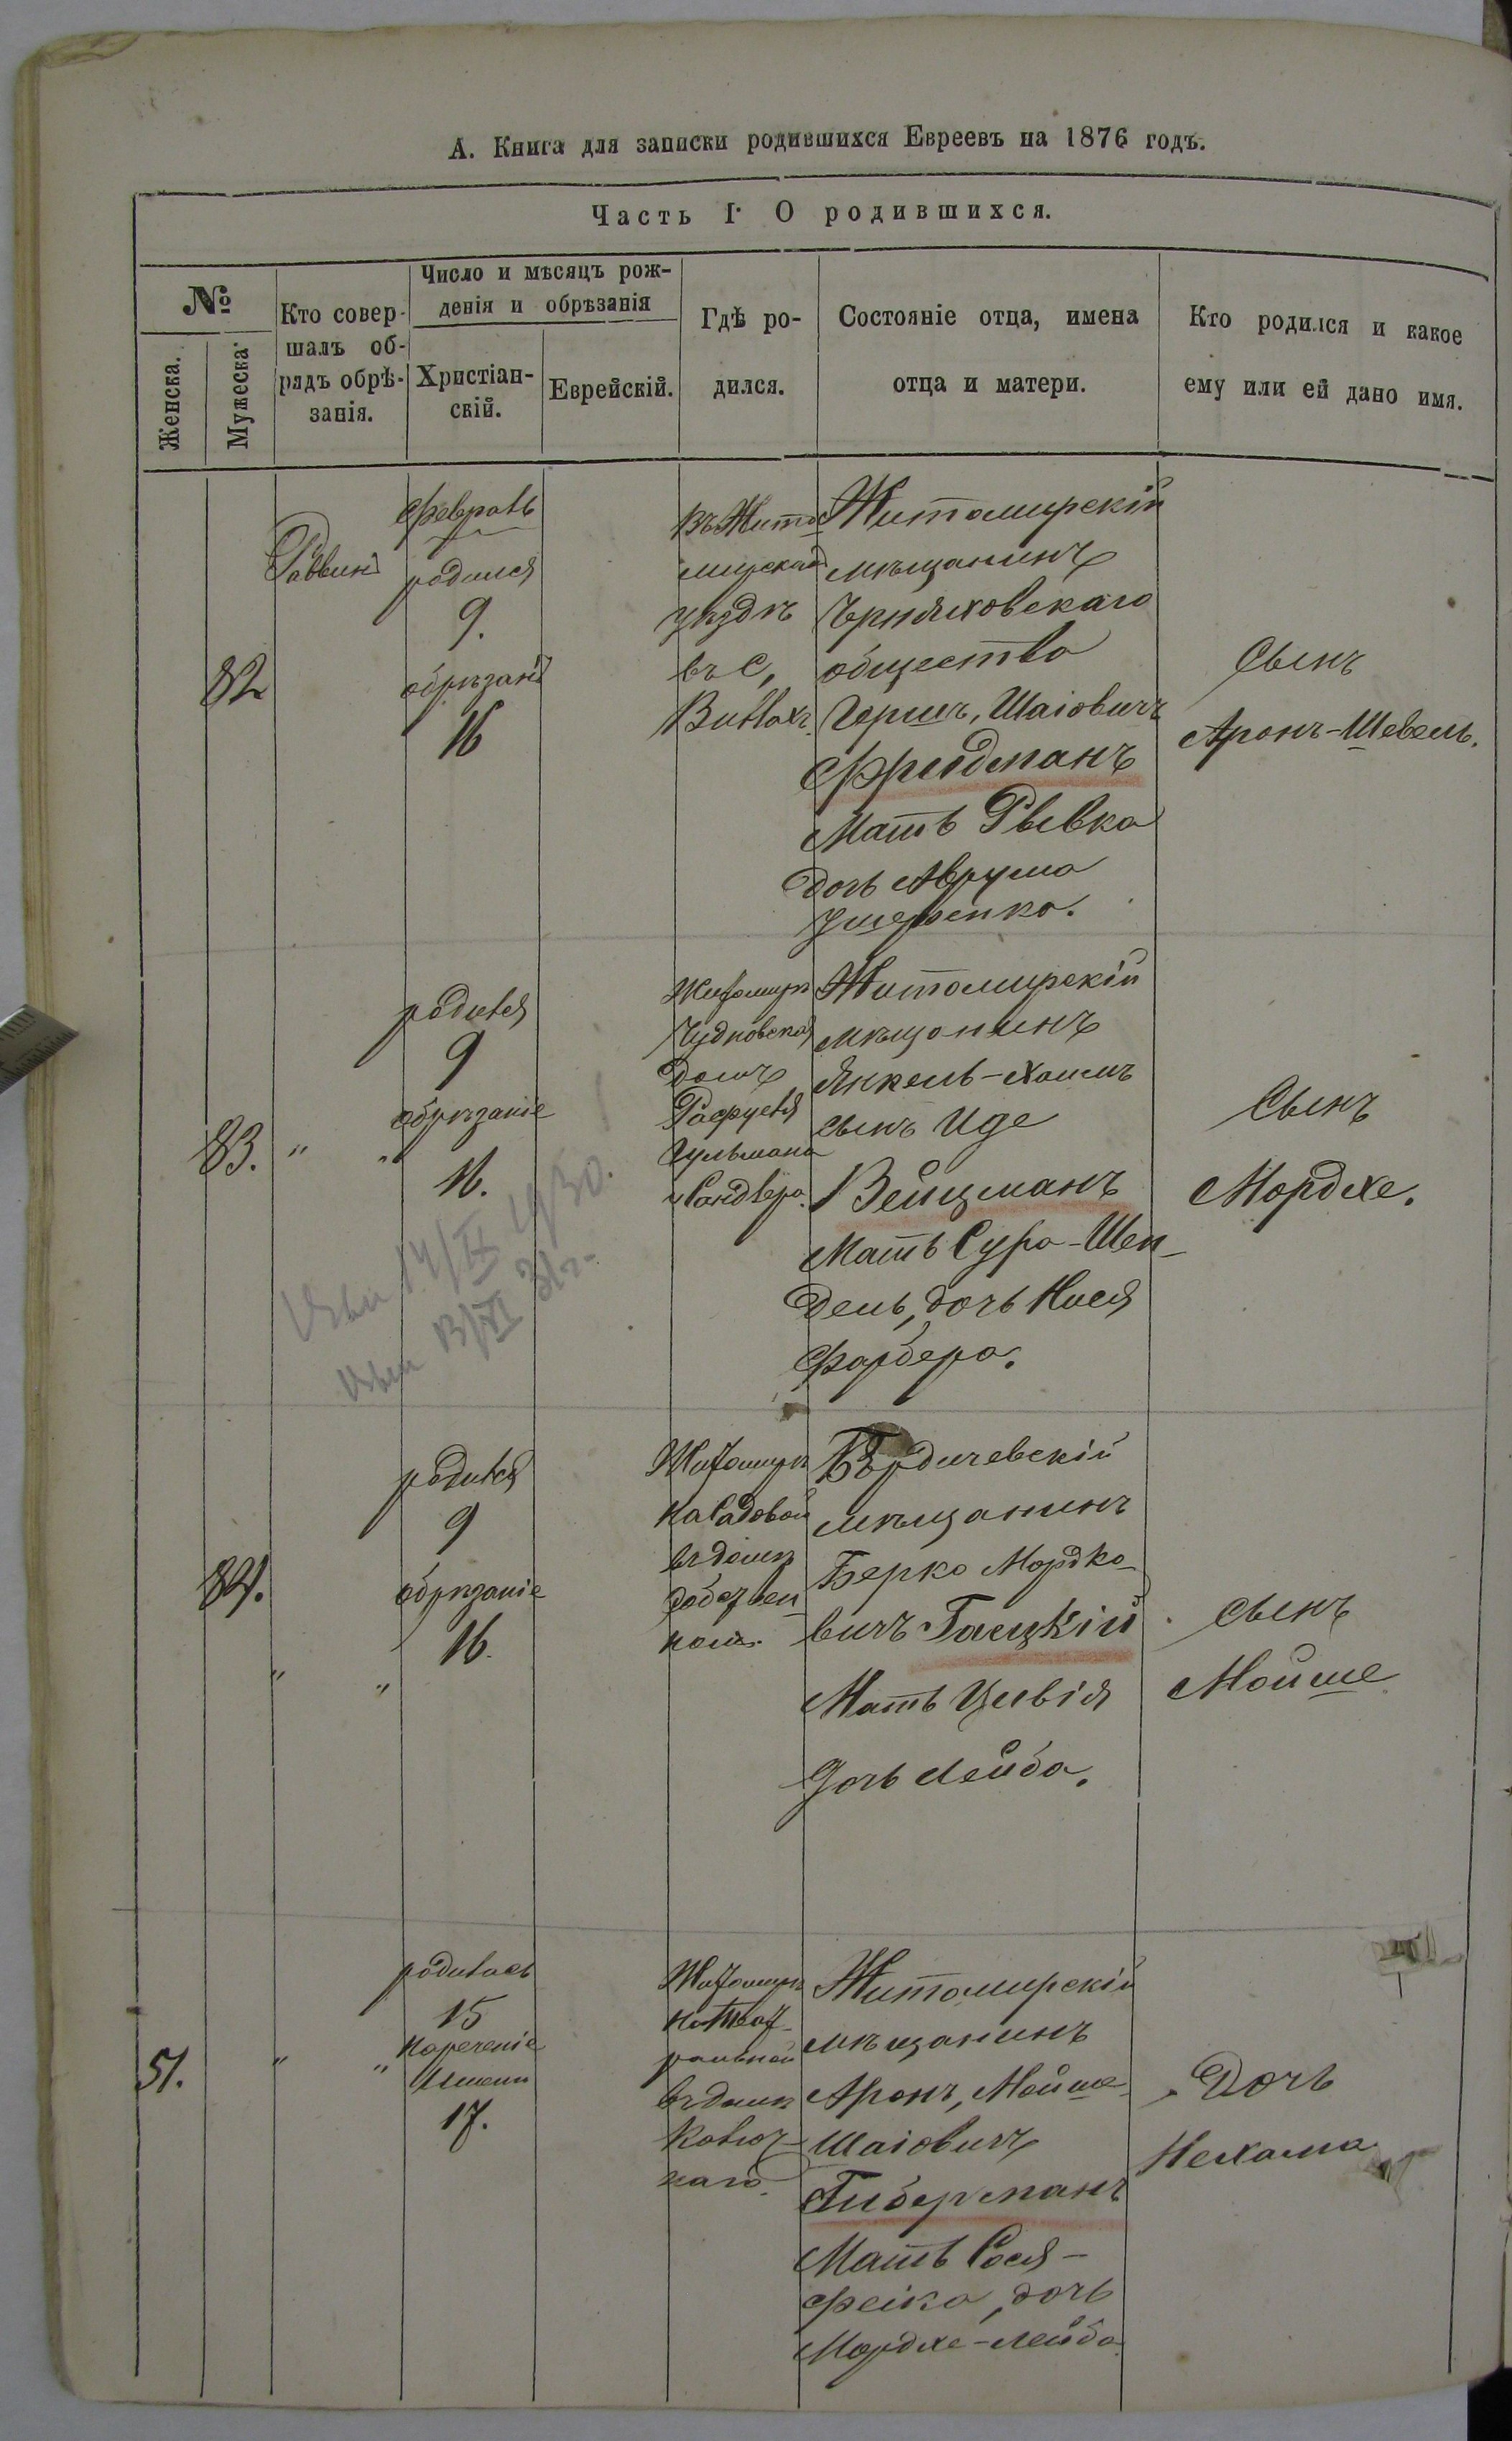 А. Книга для записки родившихся Евреевъ на 1876 годъ.
Часть I О родившихся.
№
Женска.
Мужеска
Кто совер-
шалъ об-
рядъ обрѣ-
занія.
Число и мѣсяцъ рож-
денія и обрѣзанія
Христіан-
скій.
Еврейскій.
Гдѣ ро-
дился.
Состояніе отца, имена
отца и матери.
Кто родился и какое
ему или ей дано имя.
82
Раввинъ
Февраль
родился
9.
обрѣзанъ
16
Въ Жито-
мирскомъ
уѣздѣ
въ с,
Житомирскій
мѣщанинъ
Черняховскаго
общества
Гершъ, Шаіовичъ
Фридманъ
Мать Рывка
дочь Аврума
Сынъ
Аронъ-Шевель.
83.
"
"
родился
9
обрѣзаніе
16.
Житомиръ
Чудновская
домъ
Гульмана
Житомирскій
мѣщанинъ
Янкель-Хаимъ
сынъ Иде
Вейцманъ
Мать Сура-Шен-
дель, дочь Нися
Фарбера.
Сынъ
Мордхе.
14/IX 1930.
13/VI 31 г.
84.
"
"
родился
9
обрѣзаніе
16.
Житомиръ
на Садовой
въ домѣ
Бердичевскій
мѣщанинъ
Берко Мордко-
вичъ Гаецкій
Мать Цивія
дочь Лейба.
сынъ
Мойше
51.
"
"
родилась
15
нареченіе
имени
17.
Житомиръ
на Теат-
ральной
въ домѣ
Житомирскій
мѣщанинъ
Аронъ, Мойше
Шаіовичъ
Гиберманъ
Мать Сося-
Фейга, дочь
Мордхе-Лейба
Дочь
Нехама